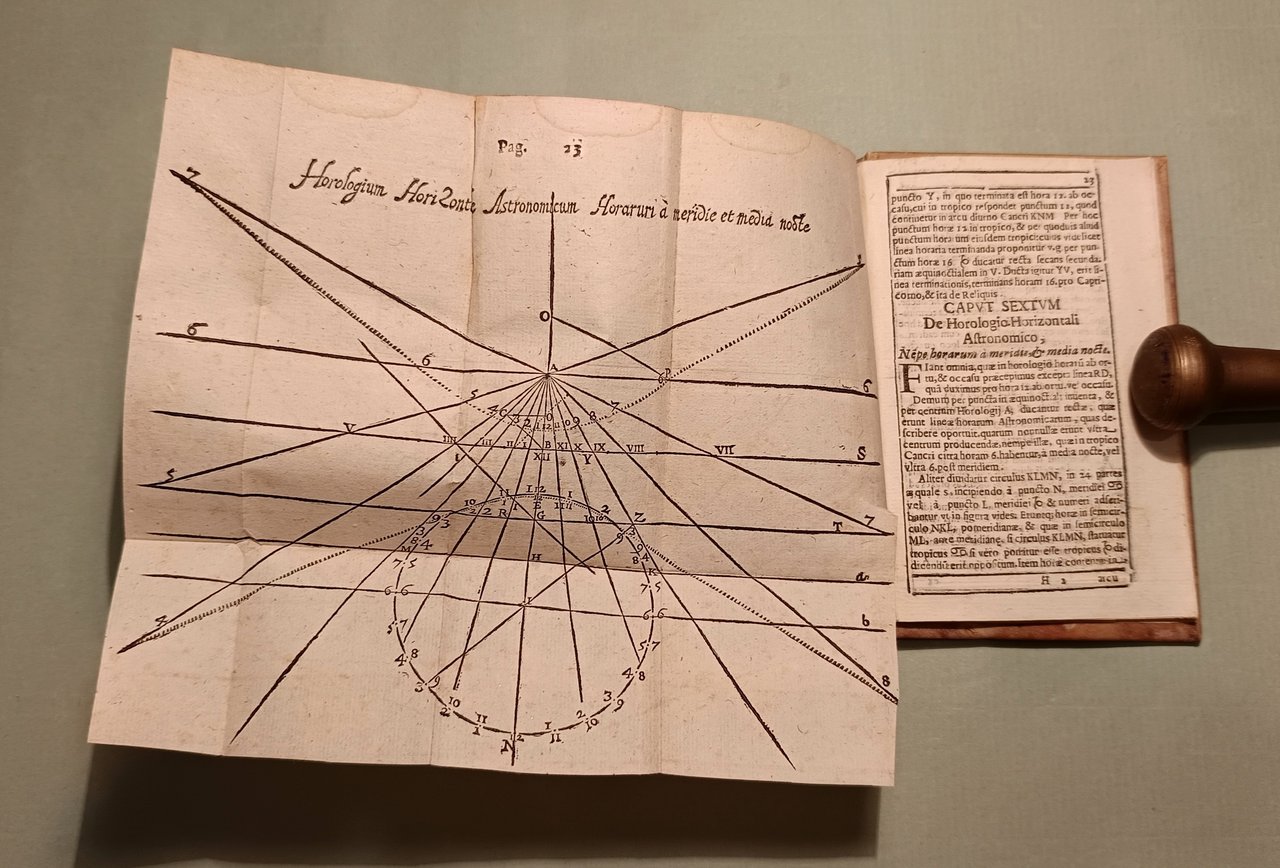 Pag. 23
Horologium Horizonte Astronomicum Horarum à meridie et media nocte
7
1
O
6
6
A
6
P
6
5
4
6
3
2
1
12
11
10
9
8
7
V
IIII
III
II
I
B
XI
X
IX
VIII
VII
S
XII
Y
5
N
12
1
10
2
R
E
G
2
Z
T
7
9
3
8
4
M
H
8
4
K
a
7
5
7
5
6
6
I
6
6
b
5
7
5
7
4
8
4
8
4
8
3
9
3
9
10
2
2
10
11
1
1
11
N
12
23
puncto Y, in quo terminata est hora 12. ab oc-
casu, cui in tropico respondet punctum 12, quod
continetur in arcu diurno Cancri KNM Per hoc
punctum horæ 12 in tropico, & per quoduis aliud
punctum horarum eiusdem tropici cuius videlicet
linea horaria terminanda proponitur v.g. per pun-
ctum horæ 16 ducatur recta secans secunda-
riam æquinoctialem in V. Ducta igitur YV, erit li-
nea terminationis, terminans horam 16. pro Capri-
corno, & ita de Reliquis.
CAPVT SEXTVM
De Horologio Horizontali
Astronomico,
Nẽpe horarum à meridie & media nocte.
FIant omnia, quæ in horologio horarũ ab or-
tu, & occasu præcepimus excepta linea RD,
quā duximus pro hora 12. ab ortu. vel occasu.
Demum per puncta in æquinoctiali inuenta, &
per centrum Horologij A, ducantur rectæ, quæ
erunt lineæ horarum Astronomicarum, quas de-
scribere oportuit. quarum nonnullæ erunt vltra
centrum producendæ, nempe illæ, quæ in tropico
Cancri citra horam 6. habentur, à media nocte, vel
vltra 6. post meridiem.
Aliter diuidatur circulus KLMN, in 24 partes
æquales, incipiendo à puncto N, meridiei ♋
vel à puncto L, meridiei ♑ & numeri adscri-
bantur vt in figura vides. Eruntq; horæ in semicir-
culo NKL, pomeridianæ, & quæ in semicirculo
ML, ante meridianæ, si circulus KLMN, statuatur
tropicus ♋ si vero ponitur esse tropicus ♑ di-
cendæ erit oppositum. Item horæ contentæ in
H 2
arcu